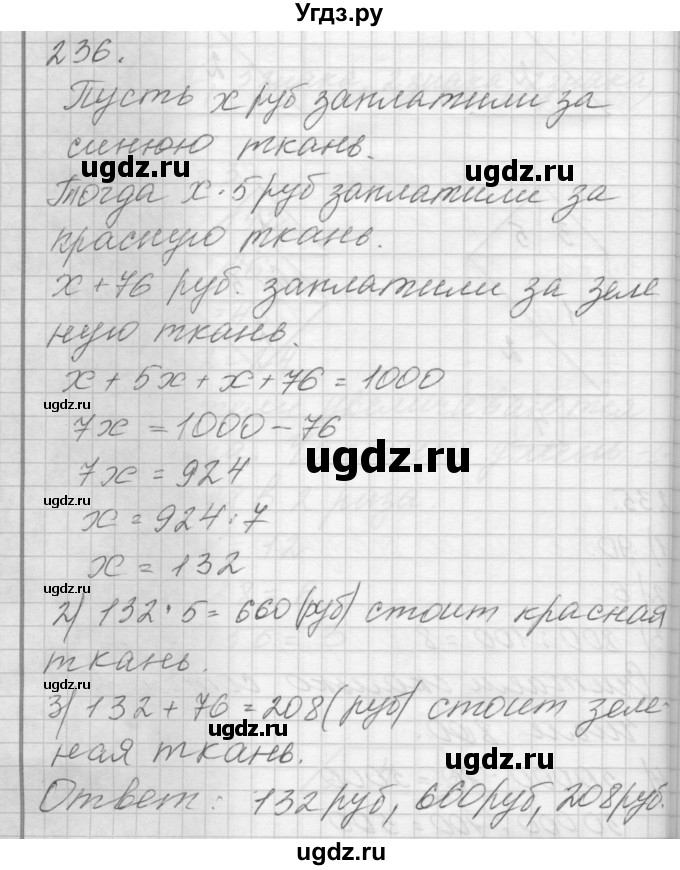 Угдз.ру
236.
Пусть x руб заплатили за
синюю ткань.
ugdz.ru ugdz.ru
Тогда x · 5 руб заплатили за
красную ткань.
x + 76 руб. заплатили за зеле
ную ткань.
x + 5x + x + 76 = 1000
ugdz.ru
7x = 1000 - 76
ugdz.ru
7x = 924
ugdz.ru
x = 924 : 7
x = 132
ugdz.ru
2) 132 · 5 = 660 (руб) стоит красная
ткань.
ugdz.ru
3) 132 + 76 = 208 (руб) стоит зеле-
ная ткань.
ugdz.ru ugdz.ru
Ответ: 132 руб, 660 руб, 208 руб.
ugdz.ru